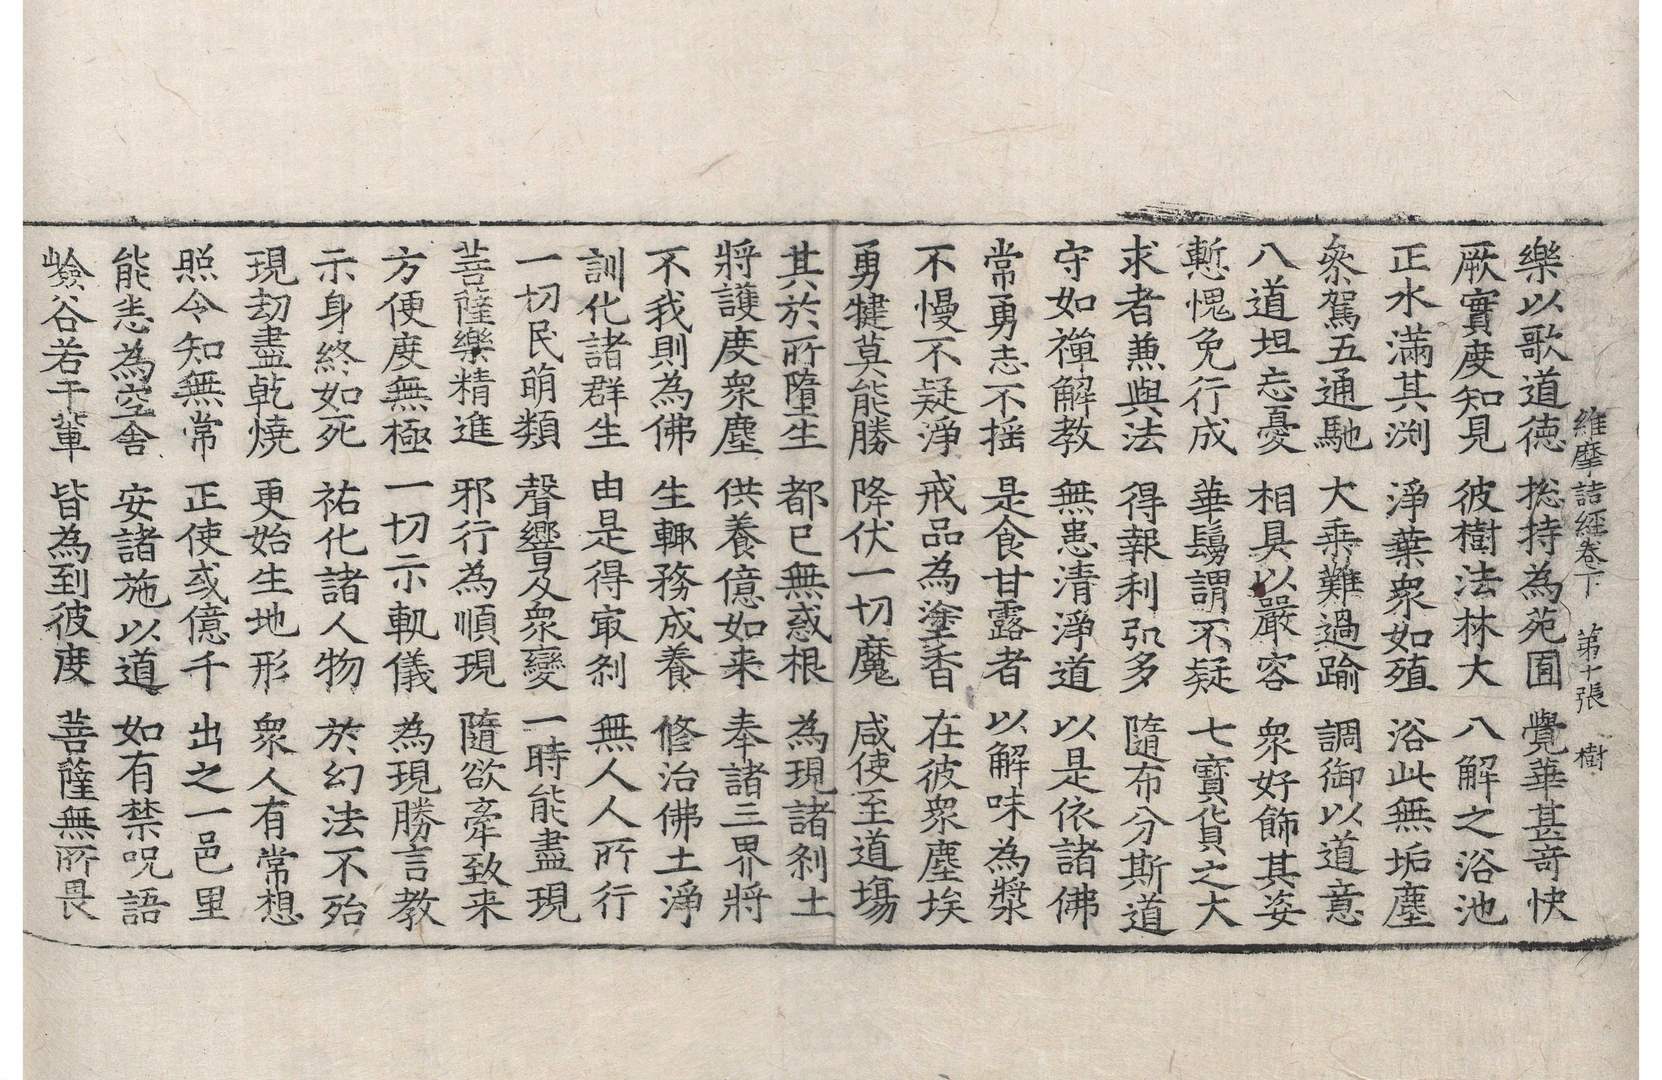 維摩詰經卷下　第十張　樹
樂以歌道德　捴持為苑囿　覺華甚竒快
厥實度知見　彼樹法林大　八解之浴池
正水滿其渕　淨葉眾如殖　浴此無垢塵
叅駕五通馳　大乘難過踰　調御以道意
八道坦忘憂　相具以嚴容　眾好飾其姿
慙愧免行成　華鬘謂不疑　七寶貨之大
求者兼與法　得報利弘多　隨布分斯道
守如禪解教　無患清淨道　以是依諸佛
常勇志不揺　是食甘露者　以解味為漿
不慢不疑淨　戒品為塗香　在彼眾塵埃
勇犍莫能勝　降伏一切魔　咸使至道場
其於所墮生　都已無惑根　為現諸刹土
將護度眾塵　供養億如来　奉諸三界將
不我則為佛　生輙務成養　修治佛土淨
訓化諸群生　由是得㝡刹　無人人所行
一切民萌類　聲響及眾變　一時能盡現
菩薩樂精進　邪行為順現　隨欲牽致来
方便度無極　一切示軌儀　為現勝言教
示身終如死　祐化諸人物　於幻法不殆
現劫盡乾燒　更始生地形　眾人有常想
照令知無常　正使或億千　出之一邑里
能恙為空舍　安諸施以道　如有禁呪語
嶮谷若干輩　皆為到彼度　菩薩無所畏